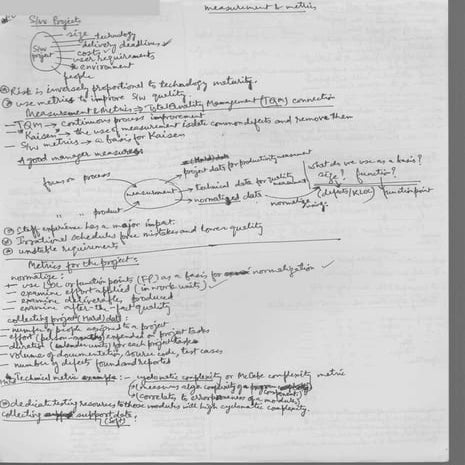 measurement & metrics
S/w Project
size
technology
delivery deadlines ✓
costs ✓
user requirements
environment
people
S/w project
Risk is inversely proportional to technology maturity.
use metrics to improve S/w quality
Measurement & Metrics → Total Quality Management (TQM) connection
— TQM → continuous process improvement
— Kaisen → the use of measurement isolate common defects and remove them
— S/w metrics → a basis for Kaisen
A good manager measures
focus on process
" " product
measurement
project data for productivity measurement
Technical data for quality
normalized data
What do we use as a basis?
size? function?
defects/KLOC
function point
normalize
Staff experience has a major impact.
Irrational schedules force mistakes and lower quality
unstable requirements
Metrics for the project:
normalize:
+ use LOC or function points (FP) as a basis for normalization ✓
— examine effort applied (in work units) ✓
— examine deliverables produced
— examine after-the-fact quality
collecting project (Hard) data:
— number of people assigned to a project
— effort (person-months) expended on project tasks
— duration (calendar units) for each project task
— volume of documentation, source code, test cases
— number of defects found and reported
Technical metric example: — cyclomatic complexity or McCabe complexity metric
→ (measures algo complexity of a program components)
→ (correlates to error proneness of a module)
dedicate testing resources to those modules with high cyclomatic complexity.
collecting support data:
(Soft)